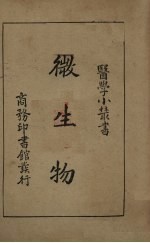 醫學小叢書
微生物
商務印書館發行